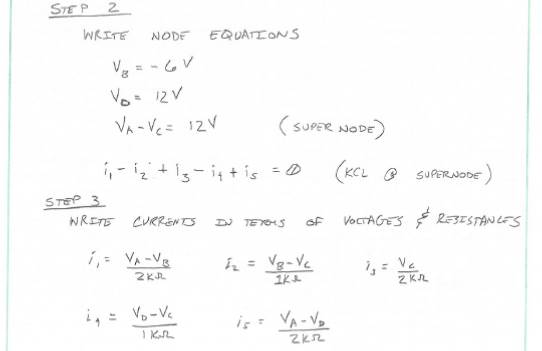 STEP 2
WRITE NODE EQUATIONS
V_B = - 6 V
V_D = 12 V
V_A - V_C = 12 V (SUPER NODE)
i_1 - i_2 + i_3 - i_4 + i_5 = 0 (KCL @ SUPERNODE)
STEP 3
WRITE CURRENTS IN TERMS OF VOLTAGES & RESISTANCES
i_1 = (V_A - V_B)/(2KΩ) i_2 = (V_B - V_C)/(1KΩ) i_3 = V_C/(2KΩ)
i_4 = (V_D - V_C)/(1KΩ) i_5 = (V_A - V_D)/(2KΩ)